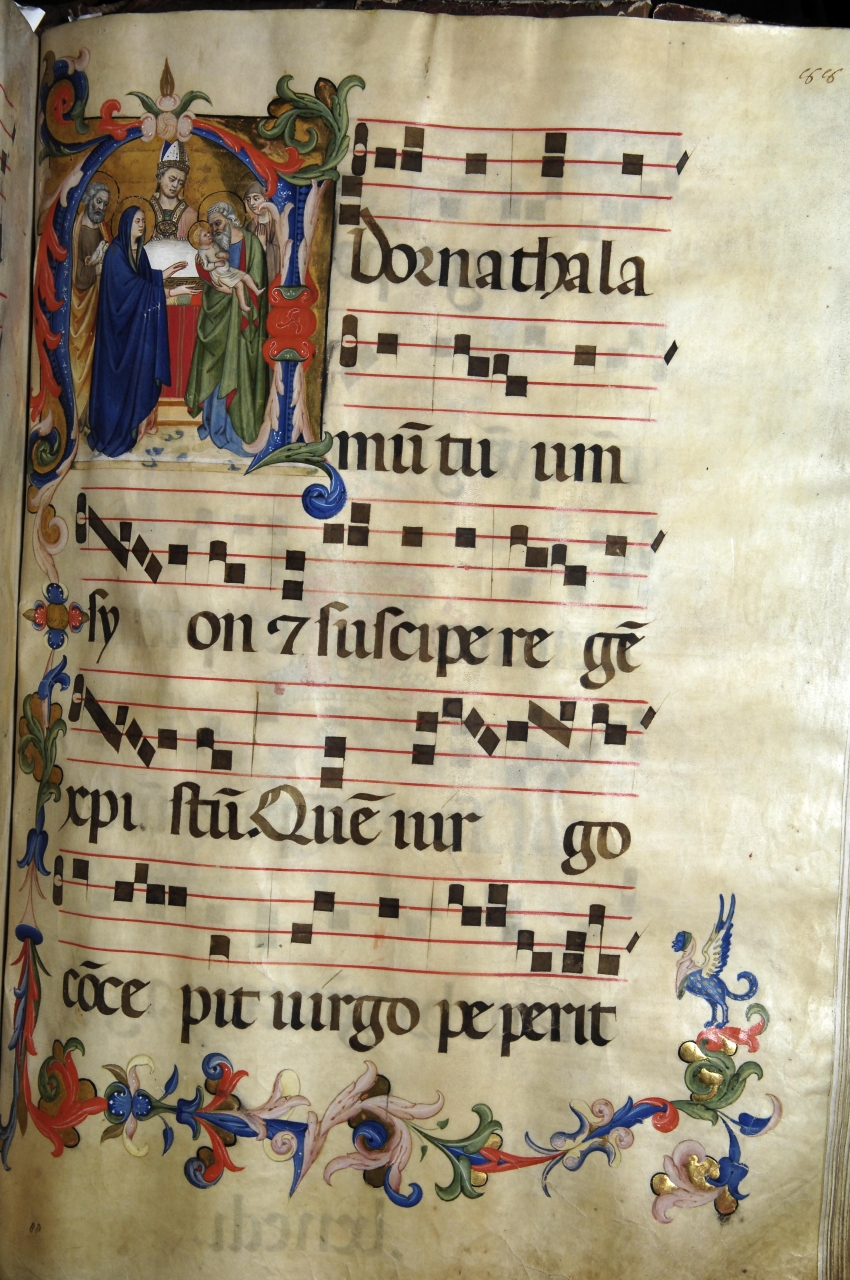 Adorna thala
mū tu um
sy on ⁊ suscipe re gē
xpi stū. Quē uir go
cōce pit uirgo pe perit